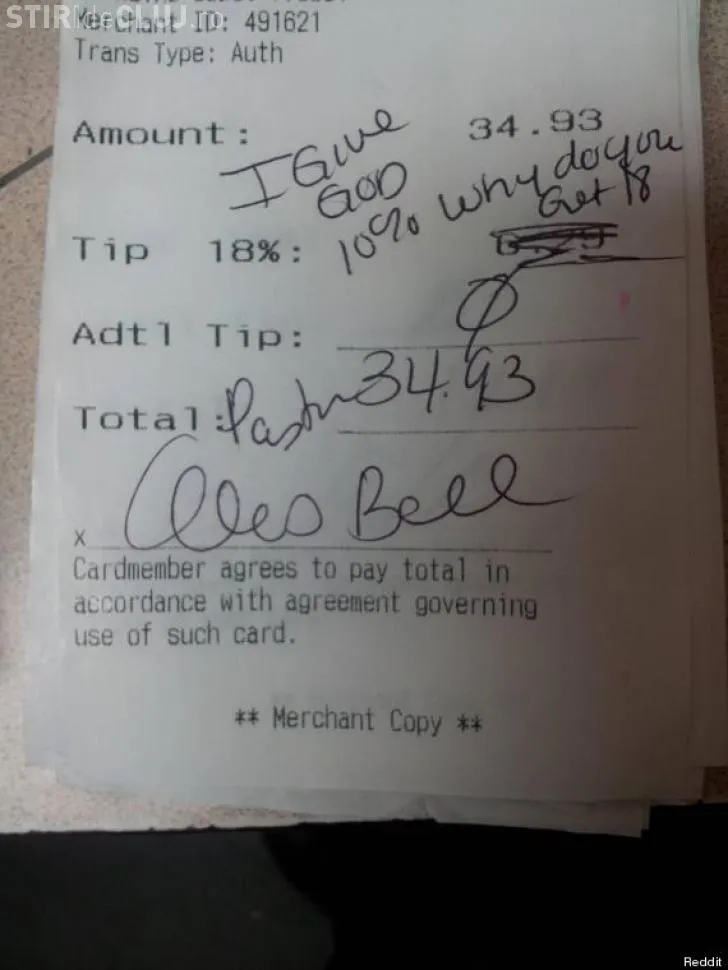 STIRIdeCLUJ.ro
Merchant ID: 491621
Trans Type: Auth
Amount: 34.93
I Give
GOD
10% Why do you
Get 18
Tip 18%:
Adtl Tip:
Total: Pastor 34.93
x
Bell
Cardmember agrees to pay total in
accordance with agreement governing
use of such card.
** Merchant Copy **
Reddit